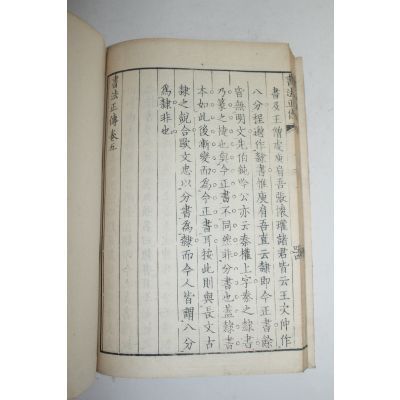 書法正傳
書及王僧虔庾肩吾張懷瓘諸君皆云王次仲作
八分程邈作隸書惟庾肩吾直云隸即今正書餘
皆無明文先伯純吟公亦云秦權上字秦之隸書
乃篆之捷也與今正書不同然非分書也蓋隸書
本如此後漸變而為今正書耳按此則與長文古
隸之說合歐文忠以分書為隸而今人皆謂八分
為隸非也
書法正傳卷五